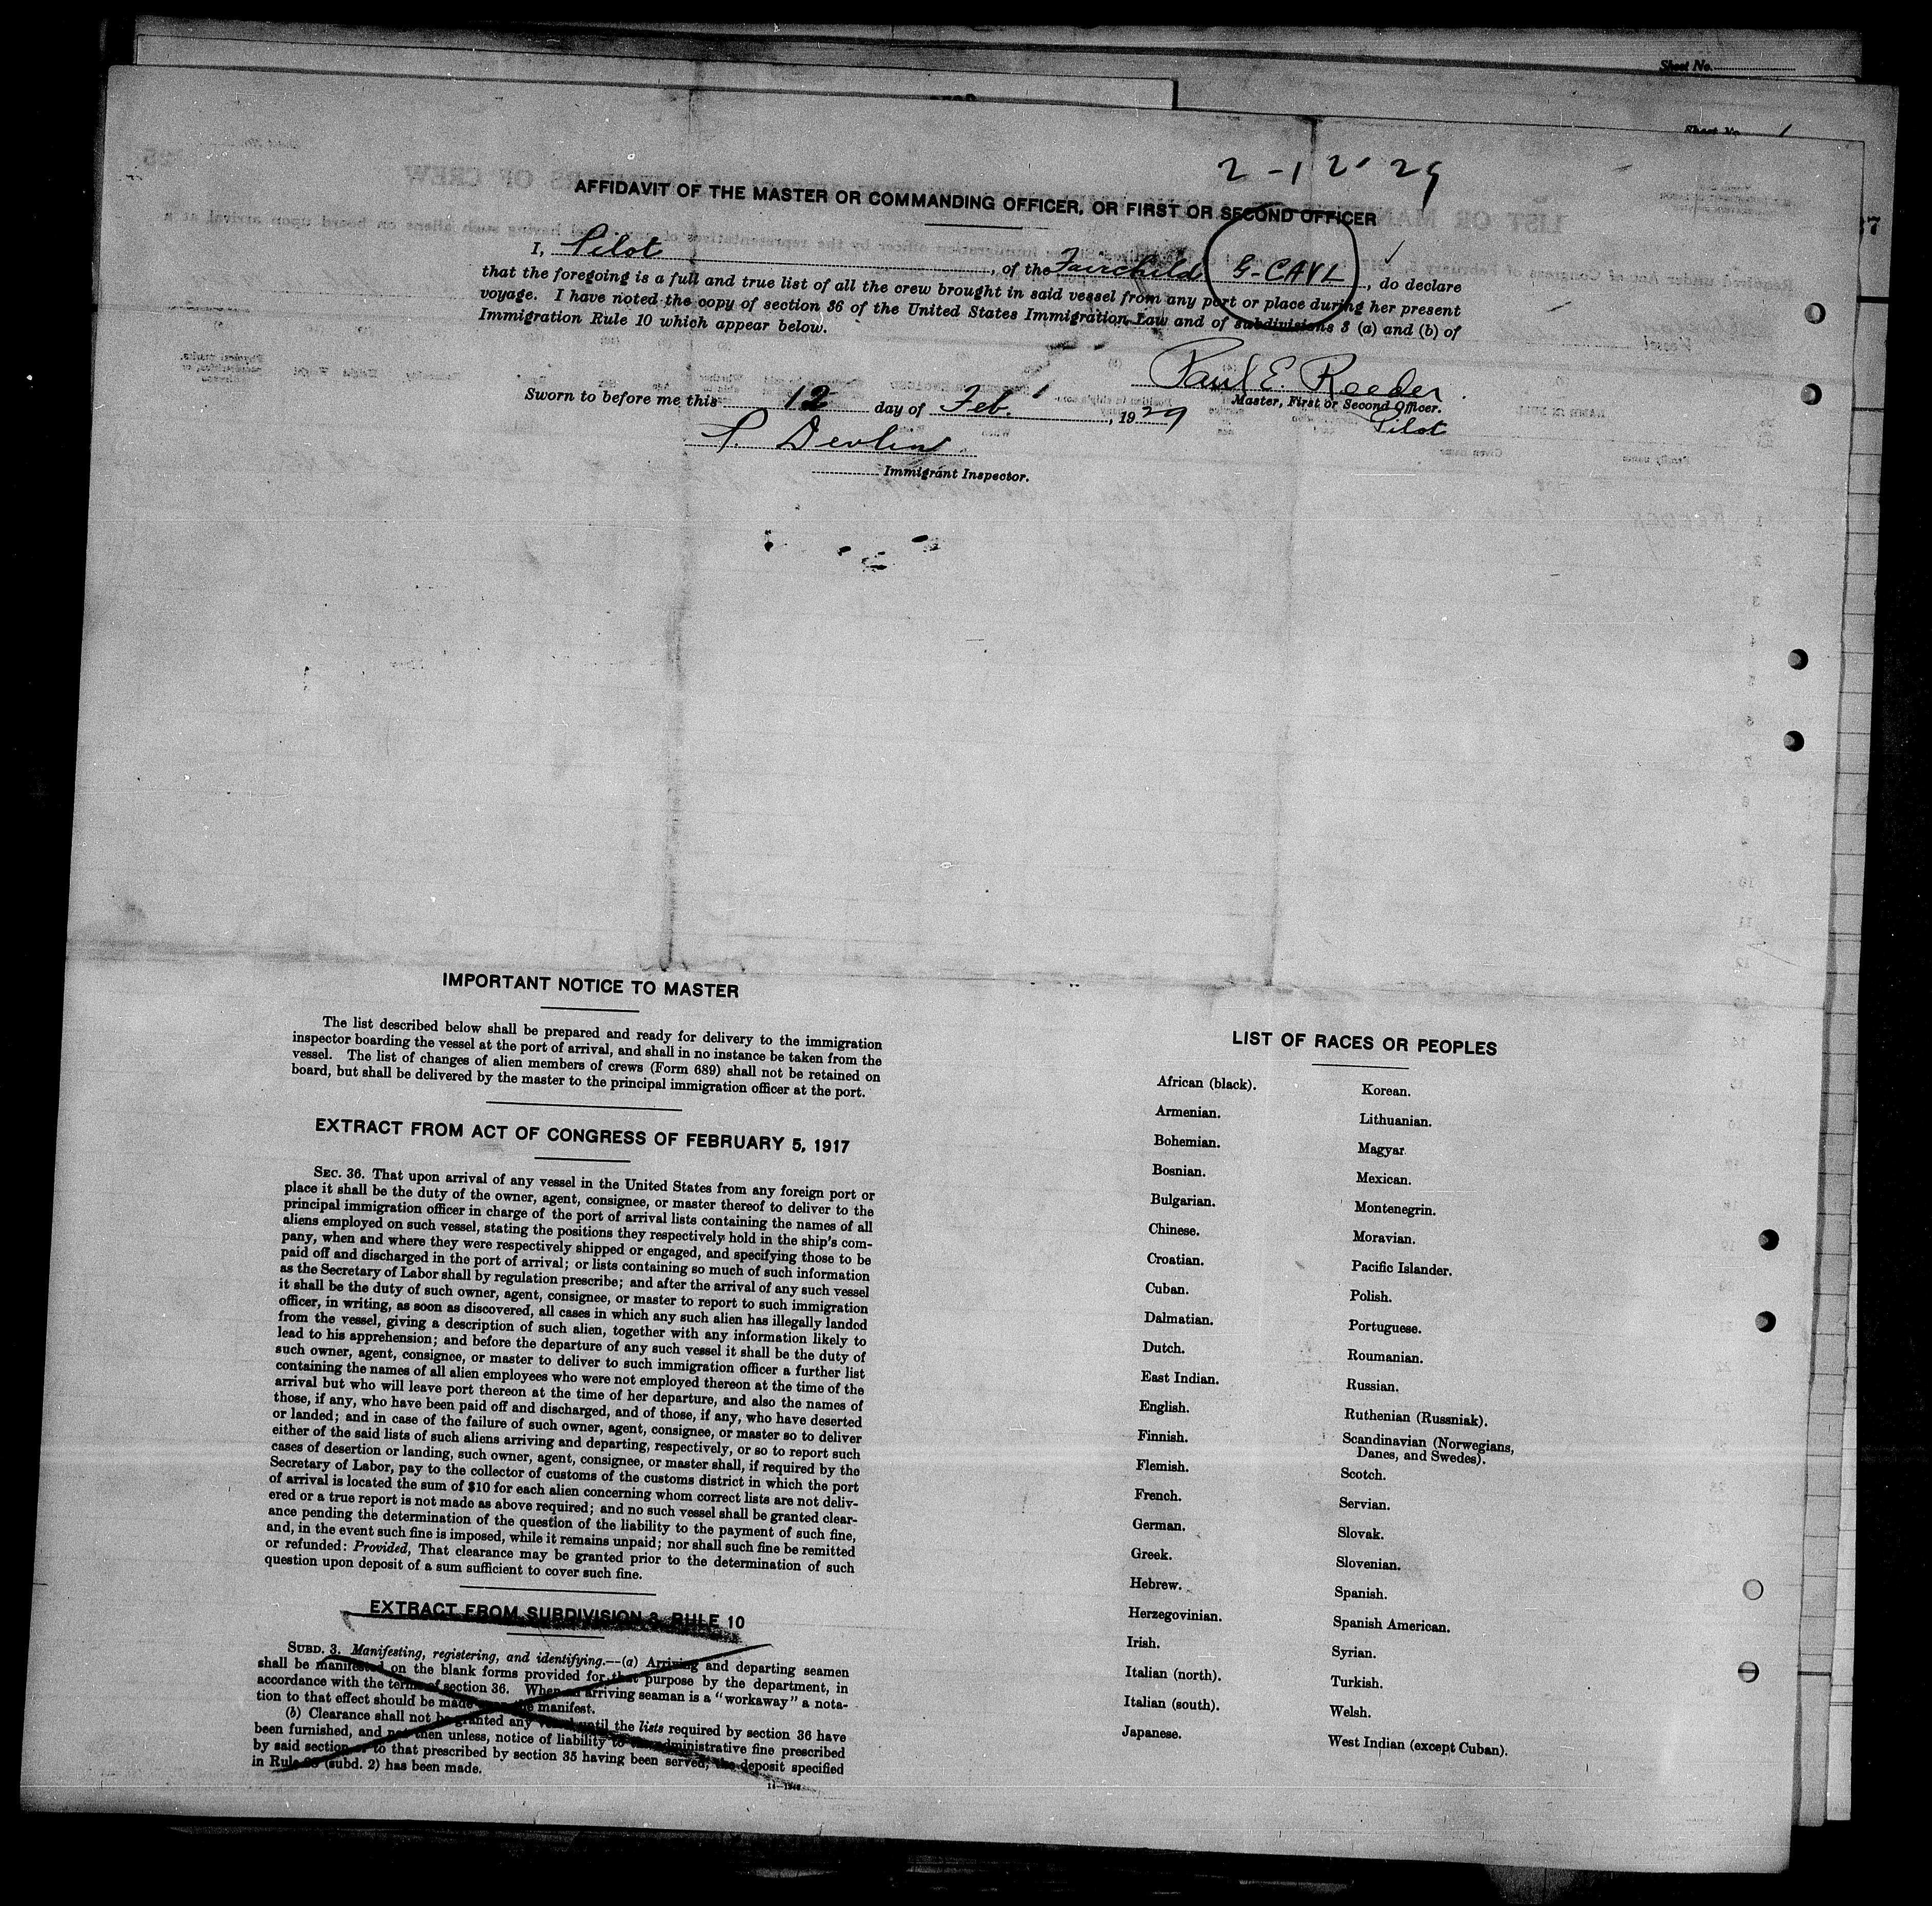 Sheet No.
Sheet No. 1
2-12-29
AFFIDAVIT OF THE MASTER OR COMMANDING OFFICER, OR FIRST OR SECOND OFFICER
I, Pilot, of the Fairchild G-CAVL, do declare
that the foregoing is a full and true list of all the crew brought in said vessel from any port or place during her present
voyage. I have noted the copy of section 36 of the United States Immigration Law and of subdivisions 3 (a) and (b) of
Immigration Rule 10 which appear below.
Paul E. Reeder
Master, First or Second Officer.
Pilot
Sworn to before me this 12 day of Feb., 1929
P. Devlin
Immigrant Inspector.
IMPORTANT NOTICE TO MASTER
The list described below shall be prepared and ready for delivery to the immigration
inspector boarding the vessel at the port of arrival, and shall in no instance be taken from the
vessel. The list of changes of alien members of crews (Form 689) shall not be retained on
board, but shall be delivered by the master to the principal immigration officer at the port.
EXTRACT FROM ACT OF CONGRESS OF FEBRUARY 5, 1917
SEC. 36. That upon arrival of any vessel in the United States from any foreign port or
place it shall be the duty of the owner, agent, consignee, or master thereof to deliver to the
principal immigration officer in charge of the port of arrival lists containing the names of all
aliens employed on such vessel, stating the positions they respectively hold in the ship's com-
pany, when and where they were respectively shipped or engaged, and specifying those to be
paid off and discharged in the port of arrival; or lists containing so much of such information
as the Secretary of Labor shall by regulation prescribe; and after the arrival of any such vessel
it shall be the duty of such owner, agent, consignee, or master to report to such immigration
officer, in writing, as soon as discovered, all cases in which any such alien has illegally landed
from the vessel, giving a description of such alien, together with any information likely to
lead to his apprehension; and before the departure of any such vessel it shall be the duty of
such owner, agent, consignee, or master to deliver to such immigration officer a further list
containing the names of all alien employees who were not employed thereon at the time of the
arrival but who will leave port thereon at the time of her departure, and also the names of
those, if any, who have been paid off and discharged, and of those, if any, who have deserted
or landed; and in case of the failure of such owner, agent, consignee, or master so to deliver
either of the said lists of such aliens arriving and departing, respectively, or so to report such
cases of desertion or landing, such owner, agent, consignee, or master shall, if required by the
Secretary of Labor, pay to the collector of customs of the customs district in which the port
of arrival is located the sum of $10 for each alien concerning whom correct lists are not deliv-
ered or a true report is not made as above required; and no such vessel shall be granted clear-
ance pending the determination of the question of the liability to the payment of such fine,
and, in the event such fine is imposed, while it remains unpaid; nor shall such fine be remitted
or refunded: Provided, That clearance may be granted prior to the determination of such
question upon deposit of a sum sufficient to cover such fine.
EXTRACT FROM SUBDIVISION 3, RULE 10
SUBD. 3. Manifesting, registering, and identifying.—(a) Arriving and departing seamen
shall be manifested on the blank forms provided for that purpose by the department, in
accordance with the terms of section 36. When an arriving seaman is a "workaway" a nota-
tion to that effect should be made upon the manifest.
(b) Clearance shall not be granted any vessel until the lists required by section 36 have
been furnished, and not then unless, notice of liability to the administrative fine prescribed
by said section or to that prescribed by section 35 having been served, the deposit specified
in Rule (subd. 2) has been made.
LIST OF RACES OR PEOPLES
African (black).
Armenian.
Bohemian.
Bosnian.
Bulgarian.
Chinese.
Croatian.
Cuban.
Dalmatian.
Dutch.
East Indian.
English.
Finnish.
Flemish.
French.
German.
Greek.
Hebrew.
Herzegovinian.
Irish.
Italian (north).
Italian (south).
Japanese.
Korean.
Lithuanian.
Magyar.
Mexican.
Montenegrin.
Moravian.
Pacific Islander.
Polish.
Portuguese.
Roumanian.
Russian.
Ruthenian (Russniak).
Scandinavian (Norwegians,
Danes, and Swedes).
Scotch.
Servian.
Slovak.
Slovenian.
Spanish.
Spanish American.
Syrian.
Turkish.
Welsh.
West Indian (except Cuban).